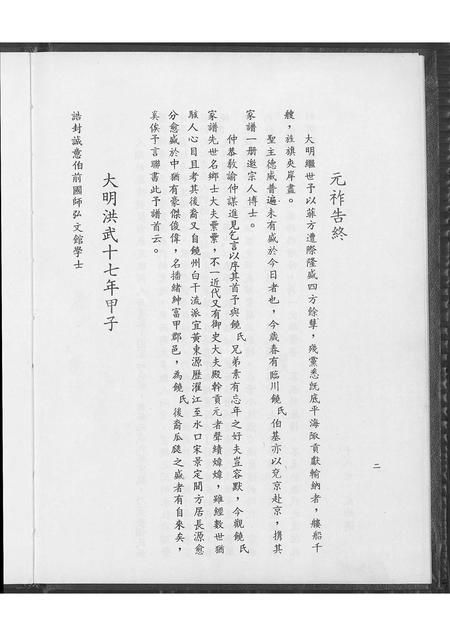 元祚告終
大明繼世予以菲方遭際隆盛四方餘孽，殘黨悉既底平海陬貢獻輸納者，艛船千
艘，旌旗夾岸盡。
聖主德威普遍未有盛於今日者也，今歲春有臨川饒氏伯基亦以兗京赴京，携其
家譜一册邀宗人博士。
仲基敎諭仲謀進見乞言以序其首予與饒氏兄弟素有忘年之好夫豈容默，今觀饒氏
家譜先世名鄉士大夫纍纍，不一近代又有御史大夫殿幹貢元者聲績煒煒，雖經數世猶
駭人心目且考其後裔又自饒州白干流派宜黃東源歷濯江至水口宋景定間方居長源愈
分愈盛於中猶有豪傑俊偉，名播緒紳富甲郡邑，為饒氏後裔瓜瓞之盛者有自來矣，
奚俟予言聯書此予譜首云。
大明洪武十七年甲子
誥封誠意伯前國師弘文館學士
二